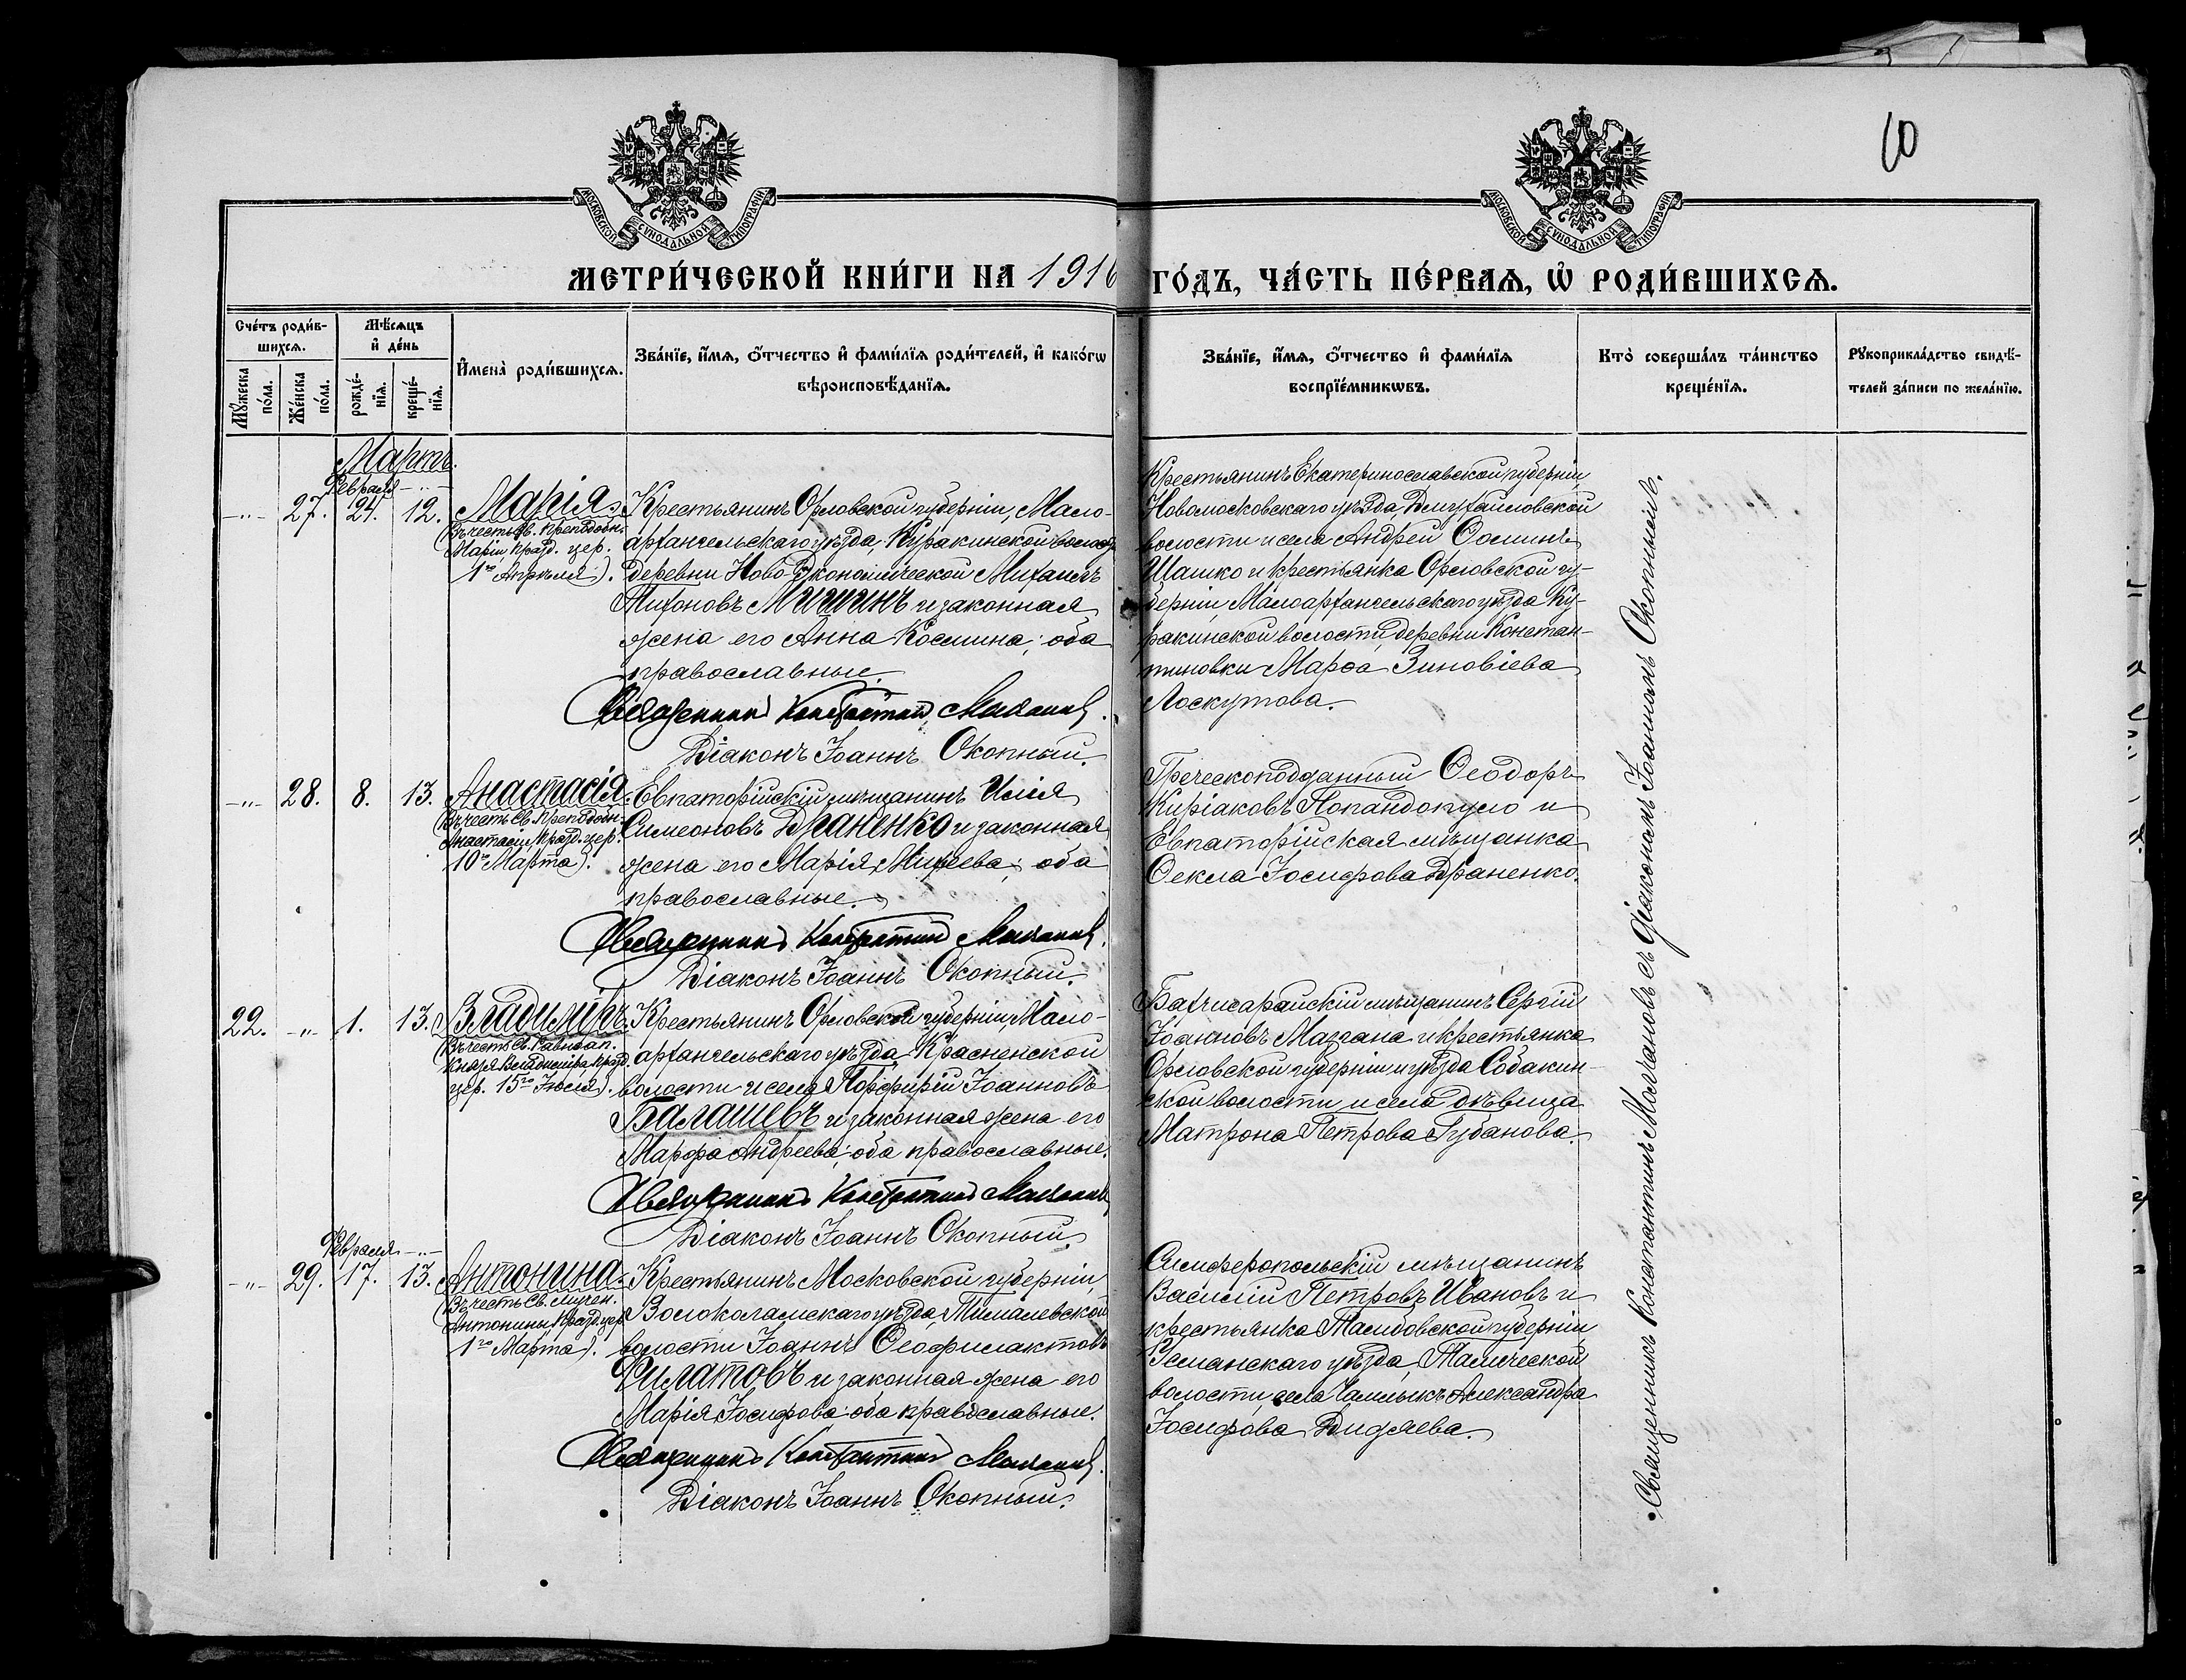 10
МОСКОВСКОЙ СУНОДАЛЬНОЙ ТИПОГРАФІИ
МОСКОВСКОЙ СУНОДАЛЬНОЙ ТИПОГРАФІИ
МЕТРИ́ЧЕСКОЙ КНИ́ГИ НА 1916 ГО́ДЪ, ЧА́СТЬ ПЕ́РВАѦ, Ѡ҆ РОДИ́ВШИХСѦ.
Сче́тъ роди́в-
шихсѧ.
Мꙋ́жеска по́ла.
Же́нска по́ла.
Мѣ́сѧцъ
и҆ де́нь
рожде́-
нїѧ.
креще́-
нїѧ.
И҆мена̀ роди́вшихсѧ.
Зва́нїе, и҆́мѧ, ѻ҆́тчество и҆ фами́лїѧ роди́телей, и҆ како́гѡ
вѣроисповѣ́данїѧ.
Зва́нїе, и҆́мѧ, ѻ҆́тчество и҆ фами́лїѧ
воспрїе́мникѡвъ.
Кто̀ соверша́лъ та́инство
креще́нїѧ.
Рꙋкоприкла́дство свидѣ́-
телей за́писи по жела́нїю.
Мартъ.
Февраля -"-
-"- 27. 24. 12.
Марія.
(Въ честь Св. Преподобн.
Маріи празд. цер.
1го Апрѣля).
Крестьянинъ Орловской губерніи, Мало-
архангельскаго уѣзда, Куракинской волости
деревни Ново-Экономической Михаилъ
Тихоновъ Мишинъ и законная
жена его Анна Космина; оба
православные.
Священникъ Константинъ Молчановъ.
Діаконъ Іоаннъ Окопный.
Крестьянинъ Екатеринославской губерніи,
Новомосковскаго уѣзда,
волости и села Андрей Ѳоминъ
Шашко и крестьянка Орловской гу-
берніи Малоархангельскаго уѣзда Ку-
ракинской волости, деревни Констан-
тиновки Марѳа Зиновіева
Лоскутова.
-"- 28. 8. 13.
Анастасія.
(Въ честь Св. Преподобн.
Анастасіи, празд. цер.
10го Марта).
Евпаторійскій мѣщанинъ Илія
Симеоновъ Драненко и законная
жена его Марія Михеева; оба
православные.
Священникъ Константинъ Молчановъ.
Діаконъ Іоаннъ Окопный.
Греческоподданный Ѳеодоръ
Киріаковъ Попандопуло и
Евпаторійская мѣщанка
Ѳекла Іосифова Драненко.
22. -"- 1. 13.
Владиміръ.
(Въ честь Св. Равноап.
Князя Владиміра, празд.
цер. 15го Іюля).
Крестьянинъ Орловской губерніи, Мало-
архангельскаго уѣзда, Красненской
волости и села Порфирій Іоанновъ
Балашевъ и законная жена его
Марфа Андреева; оба православные.
Священникъ Константинъ Молчановъ
Діаконъ Іоаннъ Окопный.
Бахчисарайскій мѣщанинъ Сергій
Іоанновъ Маздана и крестьянка
Орловской губерніи и уѣзда Собакин-
ской волости и села дѣвица
Матрона Петрова Губанова.
Февраля -"-
-"- 29. 17. 13.
Антонина.
(Въ честь Св. мучен.
Антонины празд. цер.
1го Марта).
Крестьянинъ Московской губерніи,
Волоколамскаго уѣзда, Тимашевской
волости Іоаннъ Ѳеофилактовъ
Филатовъ и законная жена его
Марія Іосифова; оба православные.
Священникъ Константинъ Молчановъ.
Діаконъ Іоаннъ Окопный.
Симферопольскій мѣщанинъ
Василій Петровъ Ивановъ и
крестьянка Тамбовской губерніи
Усманскаго уѣзда, Талицкой
волости, села Чамлыкъ Александра
Іосифова Дидяева.
Священникъ Константинъ Молчановъ съ діакономъ Іоанномъ Окопнымъ.